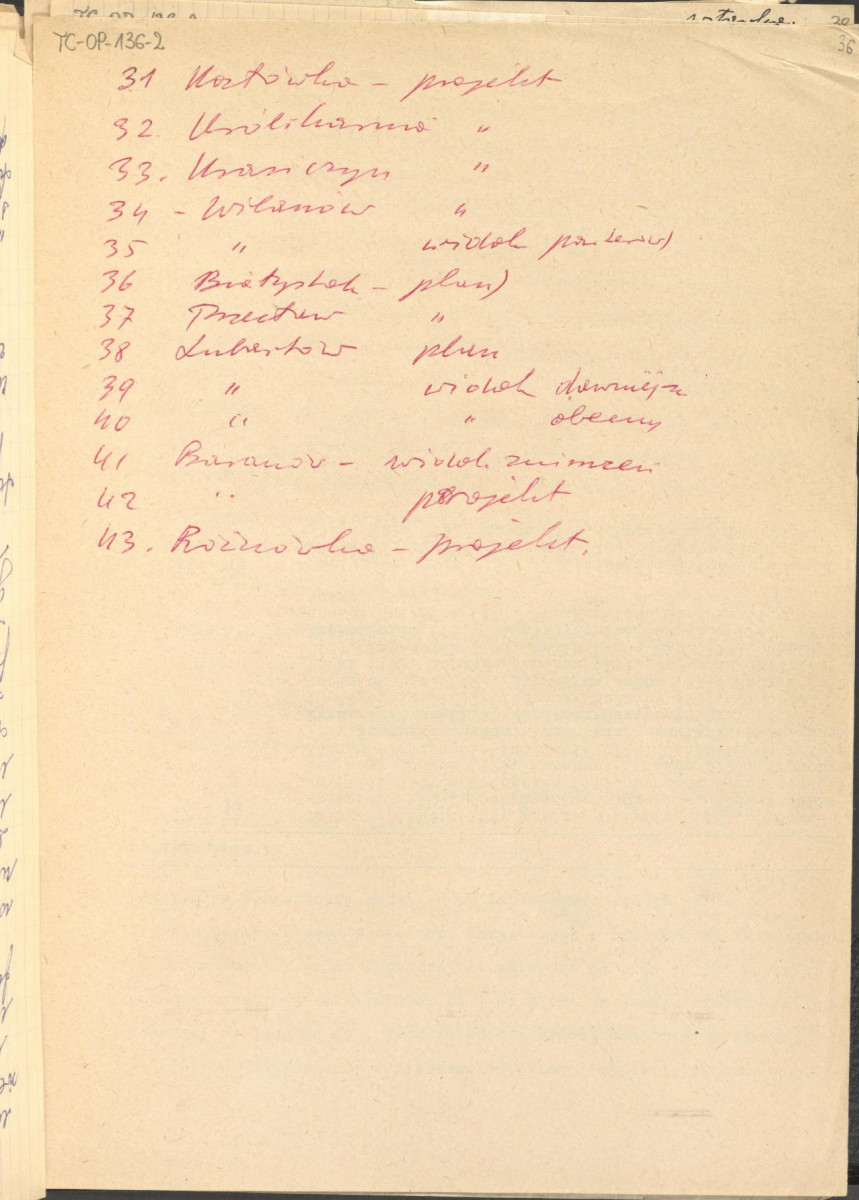 TC-OP-136-2
36
31 Kozłówka – projekt
32 Królikarnia "
33. Krasiczyn "
34 – Wilanów "
35 " widok parterów)
36 Białystok – plan)
37 Przecław "
38 Lubartów plan
39 " widok dawniejszy
40 " " obecny
41 Baranów – widok zniszczeń
42 " projekt
43. Rożnówka – projekt.